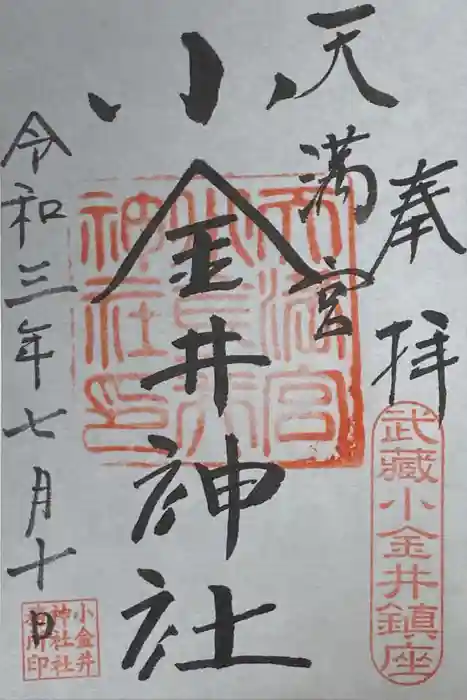 奉拝
武蔵小金井鎮座
天満宮
小金井神社
令和三年七月十日
小金井
神社社
務所印